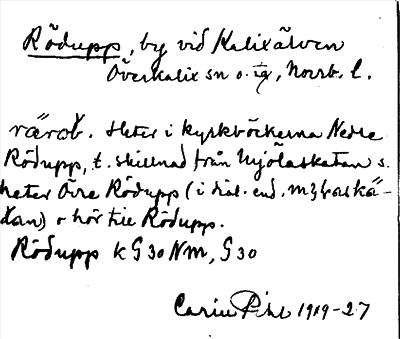 Rödupp, by vid Kalixälven
Överkalix sn o. tg, Norrb. l.
Heter i kyrkböckerna Nedre
Rödupp, t. skillnad från Mjölaskatan s.
heter Övre Rödupp (i dial. end.
) o hör till Rödupp.
Rödupp K G30 NM, G30
Carin Pihl 1919-27